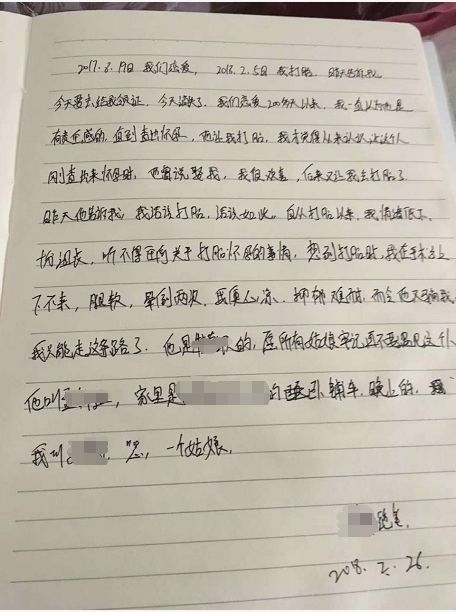 2017.8.19日 我们恋爱, 2018.2.5日 我打胎, 昨天告诉我
今天要去给我领证, 今天消失了. 我们恋爱200多天以来, 我一直认为他是
有责任感的, 直到查出怀孕, 他让我打胎, 我才觉得从来认识过这个人
刚查出来怀孕时, 他曾说娶我, 我很欢喜, 后来又让我去打胎了.
昨天他告诉我, 我活该打胎, 活该如此. 自从打胎以来, 我情绪低下.
听不得任何关于打胎怀孕的事情, 想到打胎时, 我在手术台上
下不来, 腿软, 晕倒两次, 抑郁难耐, 而今他又骗我,
我只能走这条路了. 他是 的, 愿所有姑娘牢记, 再不要遇见这个人
他叫 , 家里是 的 辅车, 晚上的,
我叫 , 一个姑娘.
绝笔.
2018.2.26.